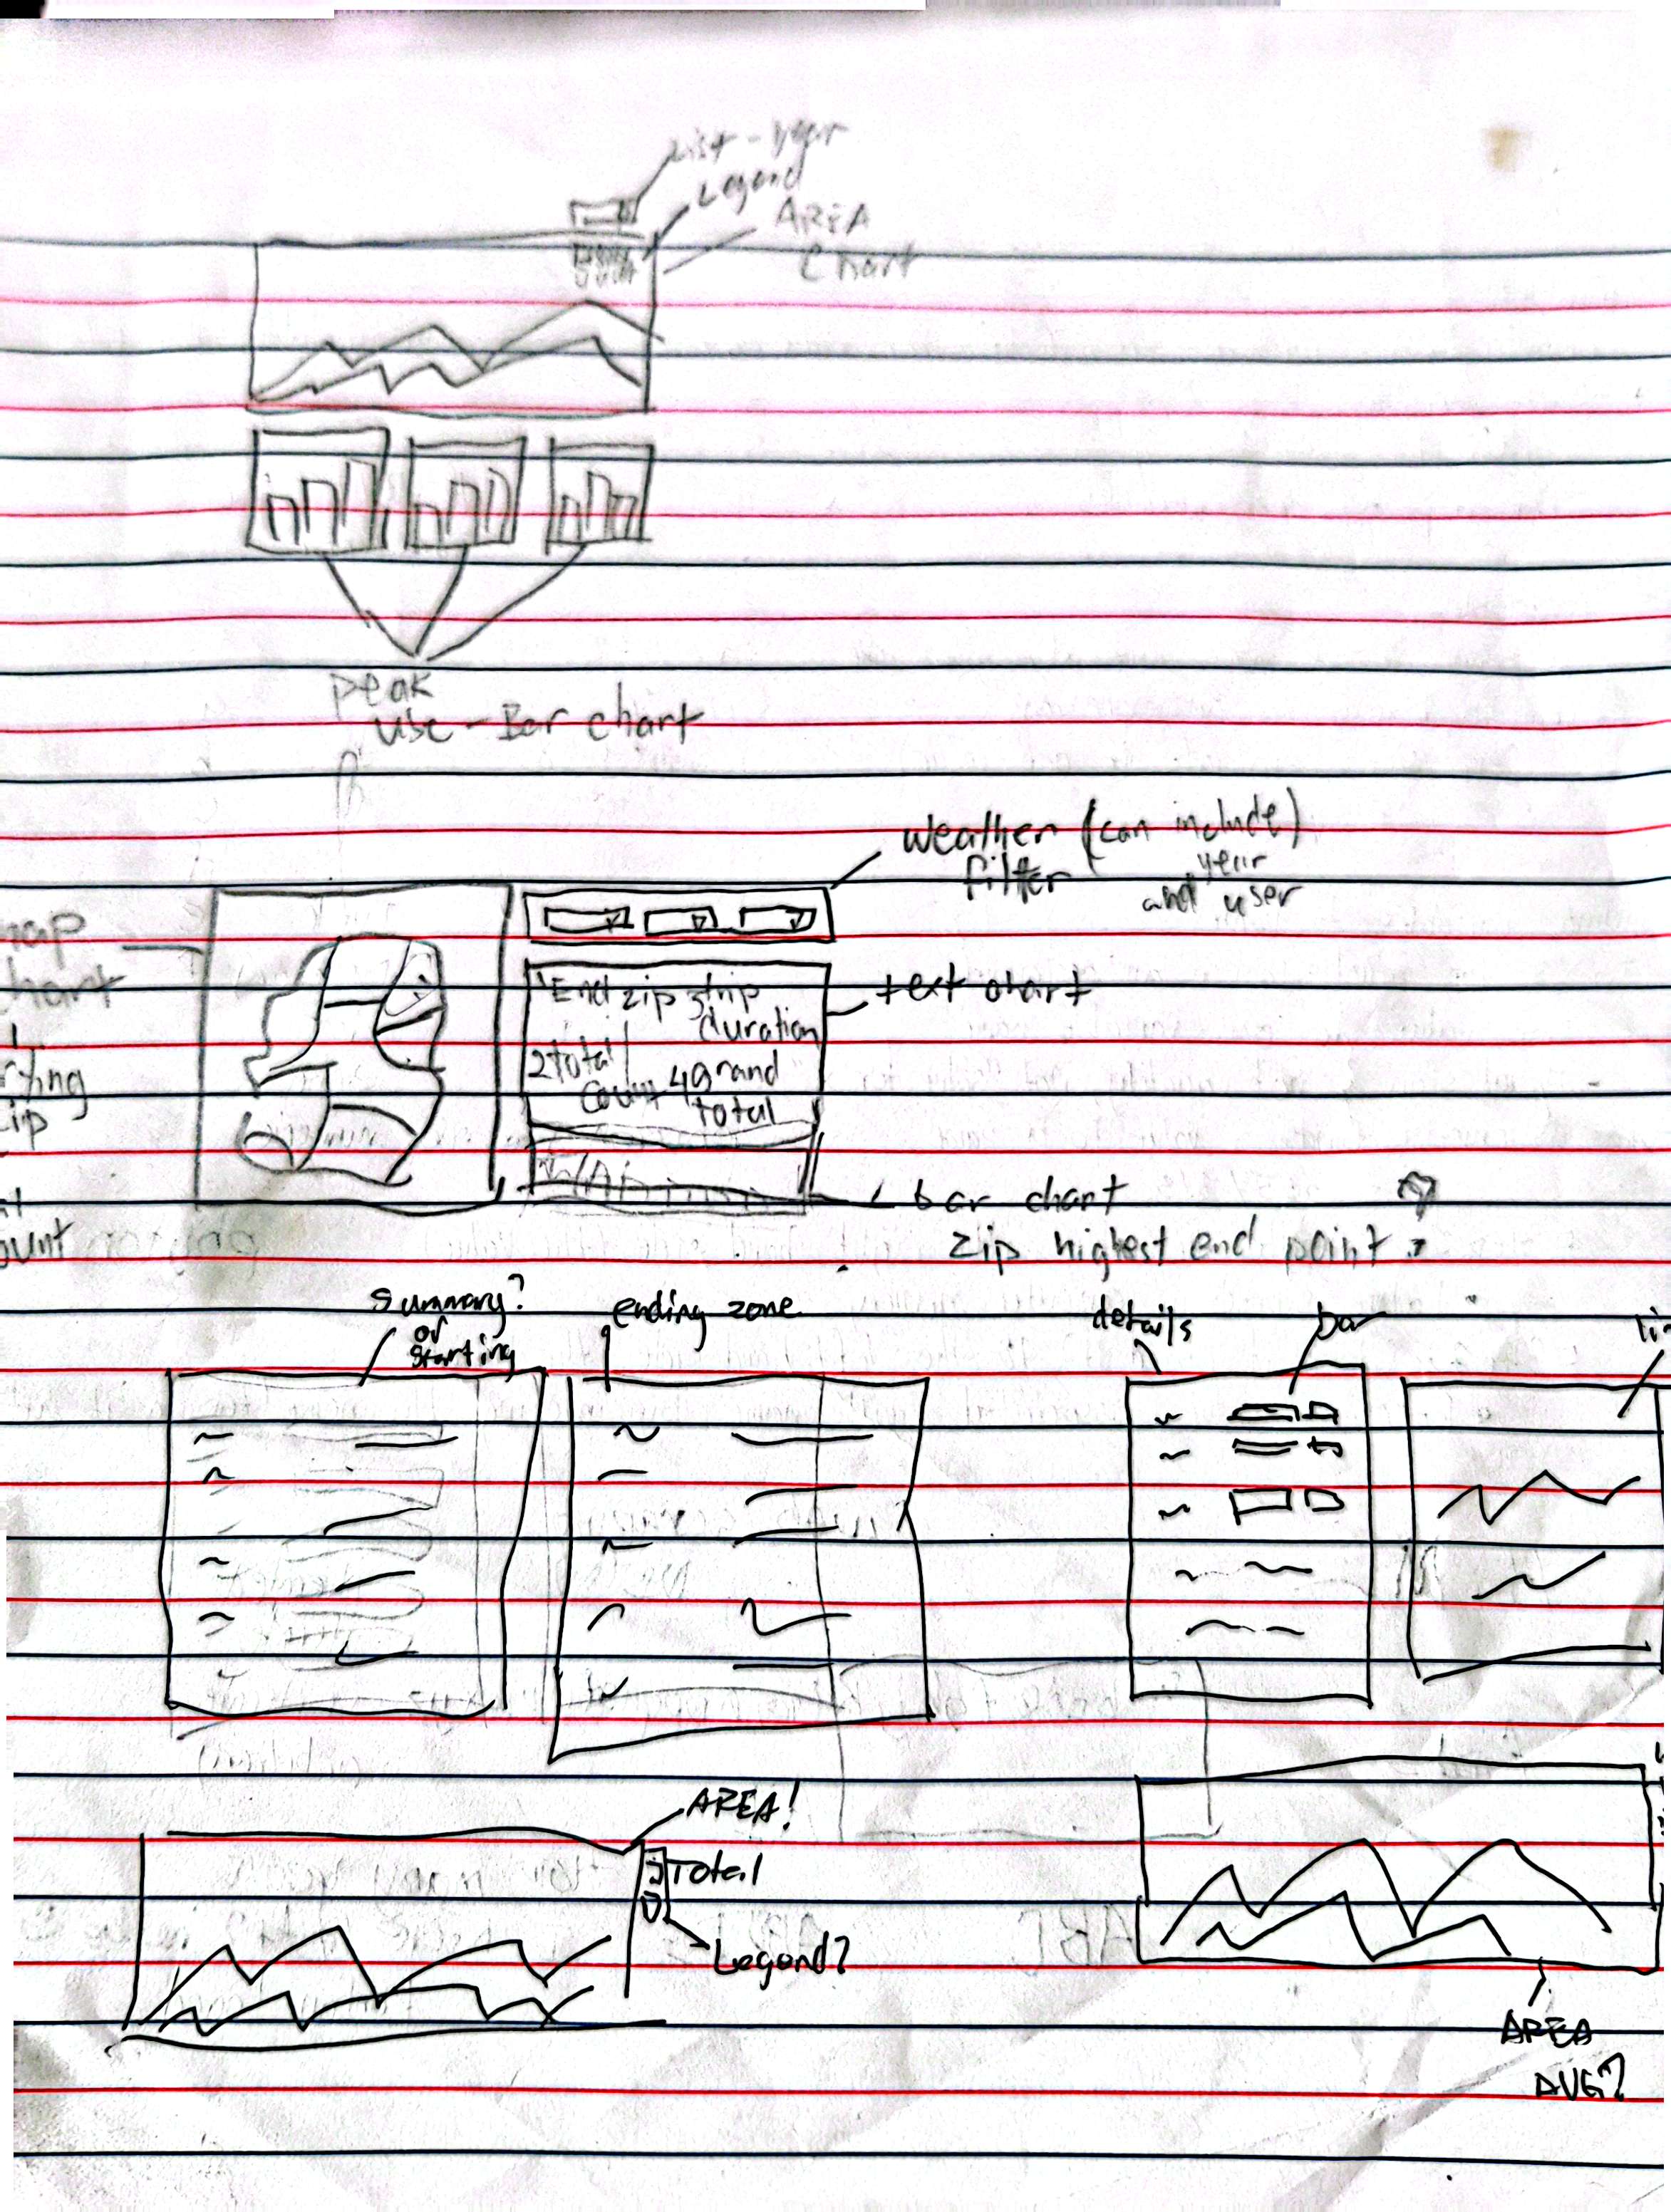 List - year
Legend
AREA
Chart
peak
use - Bar chart
weather (can include)
filter year
and user
map
chart
End zip 3 trip
duration
2 total
count 4 grand
total
text chart
zip
bar chart
zip highest end point ?
summary?
or
starting
ending zone
details
bar
AREA!
Total
Legend?
AREA
AVG?